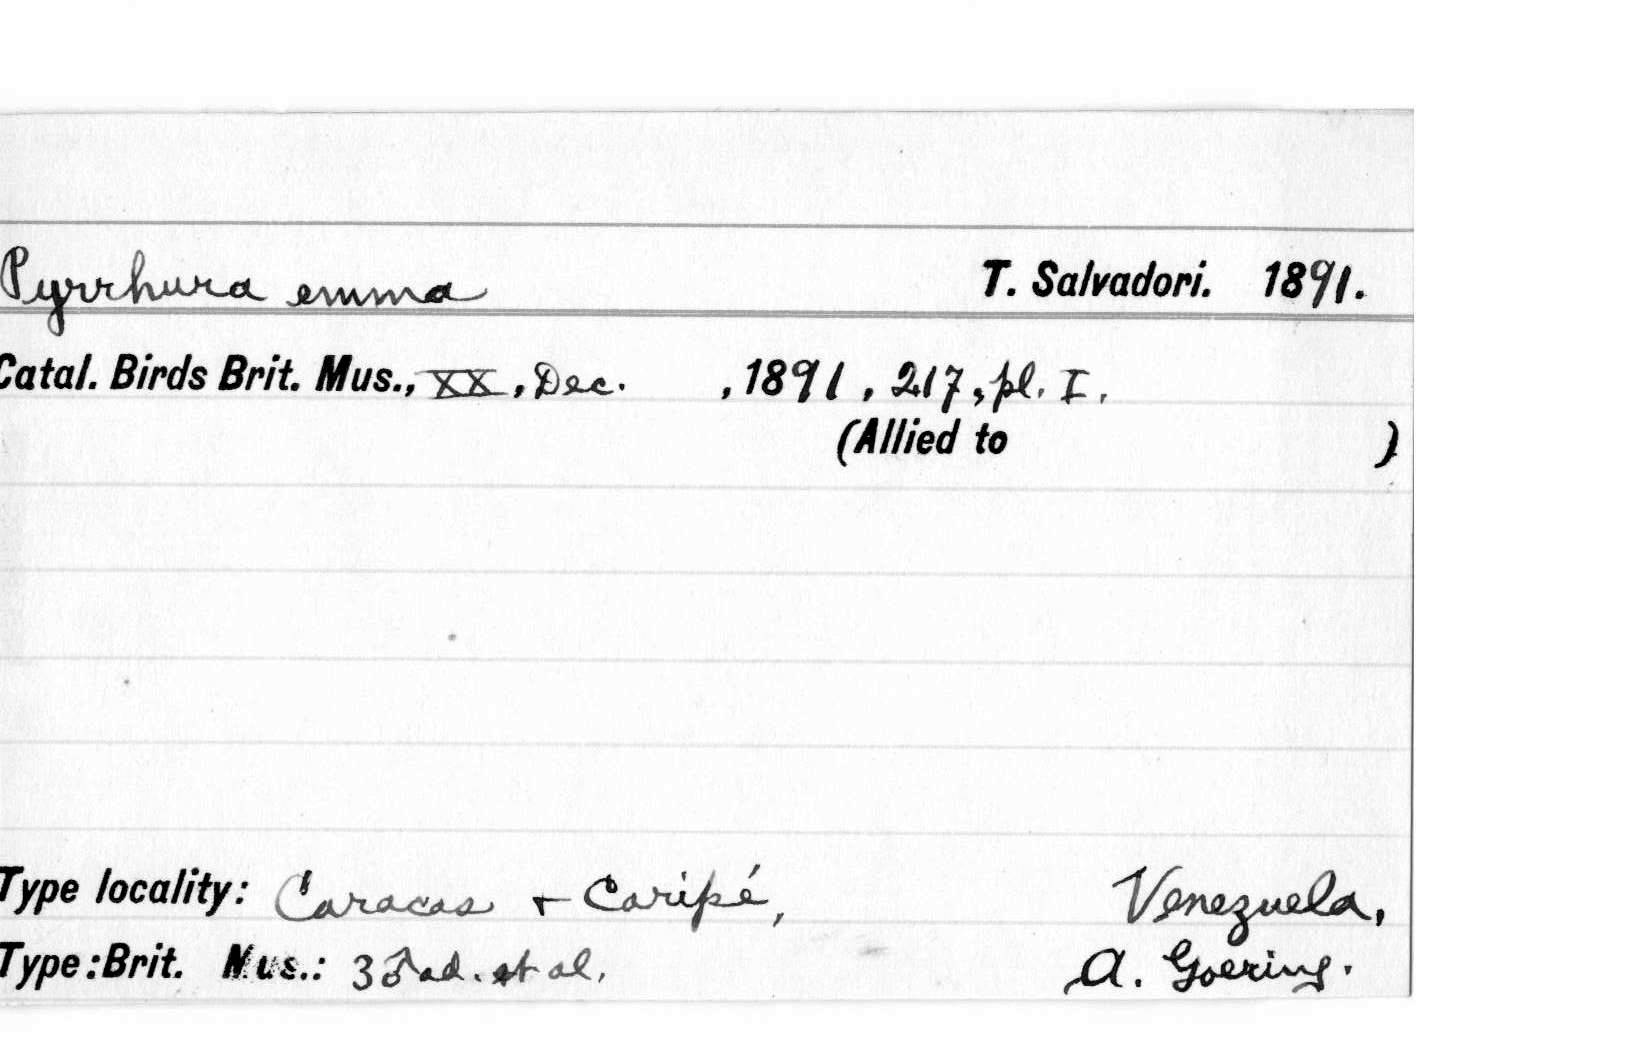 Pyrrhura emma T. Salvadori. 1891.
Catal. Birds Brit. Mus., XX, Dec. , 1891, 217, pl. I.
(Allied to )
Type locality: Caracas + Caripé, Venezuela,
Type: Brit. Mus.: 3♂ad. et al. A. Goering.